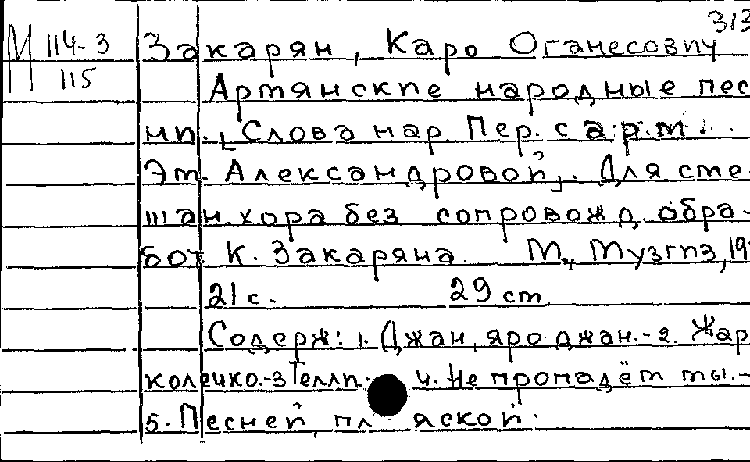 313
М 114-3 Закарян, Каро Оганесович
115 Армянские народные пес
ни. [Слова нар Пер. с арм.
Эт. Александровой]. Для сме-
шан. хора без сопровожд обра-
бот К. Закаряна. М., Музгиз, 19
21 с. 29 см
Содерж: 1. Джан, яро джан.-2. Жар
колечко.-3 Телли. 4. Не пропадём мы.-
5. Песней, пляской.